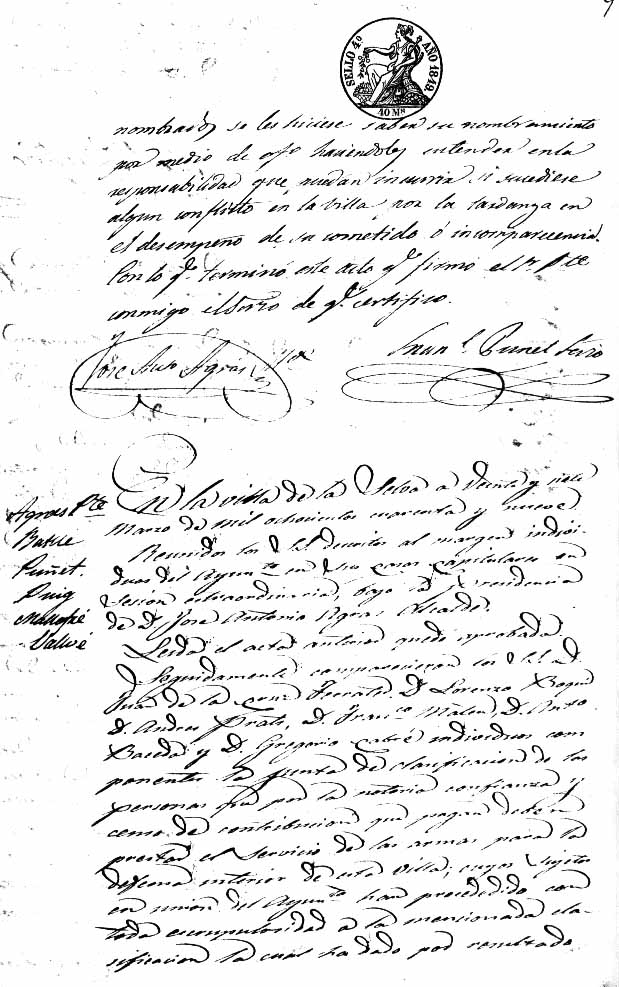 SELLO 4º AÑO 1849.
40 Ms
nombrados se les hiciese saber su nombramiento
por medio de ofº haciendoles entender en la
responsabilidad que puedan incurrir si sucediese
algun conflicto en la villa por la tardanza en
el desempeño de su cometido ó incomparecencia.
Con lo q.e terminó este acto q.e firmó el Sr. Pte
conmigo el Srio de q.e certifico.
José Anto Agrás
Juan Punet Srio
En la villa de la Selva a veinte y siete
Marzo de mil ochocientos cuarenta y nueve
Agras Pte
Batlle
Puñet.
Puig
Mallafré
Vallvé
Reunidos los SS. descritos al margen indivi-
duos del Ayunto en sus casas capitulares en
sesion extraordinaria, bajo la Presidencia
de D. José Antonio Agras Alcalde.
Leida el acta anterior quedó aprobada.
Seguidamente comparecieron los SS. D.
Juan de la Cruz Ferraté, D. Lorenzo
D. Andres Prats, D. Franco D. Anto
Baseda y D. Gregorio Cabré individuos com
ponentes la Junta de clasificacion de las
personas que por la notoria confianza y
censo de contribucion que pagan deben
prestar el servicio de las armas para la
defensa interior de esta villa; cuyos sujetos
en union del Ayunto han procedido con
toda escrupulosidad a la mencionada cla-
sificacion la cual ha dado por resultado